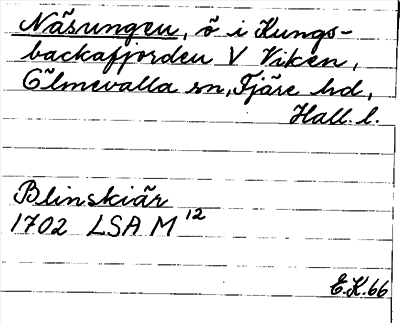 Näsungen, ö i Kungs-
backafjorden V Viken,
Ölmevalla sn, Fjäre hd,
Hall. l.
Blinskiär
1702 LSA M 12
E.K. 66